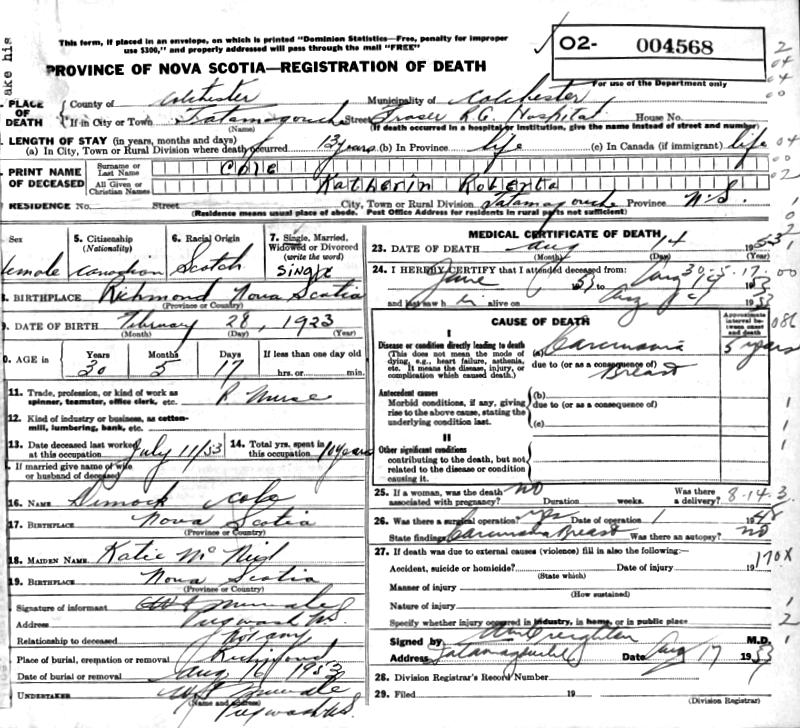 ake his
This form, if placed in an envelope, on which is printed "Dominion Statistics—Free, penalty for improper
use $300," and properly addressed will pass through the mail "FREE"
O2- 004568
For use of the Department only
PROVINCE OF NOVA SCOTIA—REGISTRATION OF DEATH
PLACE OF DEATH
County of Colchester Municipality of Colchester
If in City or Town Tatamagouche Street Fraser R.C. Hospital House No.
(Name) (If death occurred in a hospital or institution, give the name instead of street and number)
LENGTH OF STAY (in years, months and days)
(a) In City, Town or Rural Division where death occurred 13 years (b) In Province life (c) In Canada (if immigrant) life
PRINT NAME OF DECEASED
Surname or Last Name Cole
All Given or Christian Names Katherin Roberta
RESIDENCE No. Street City, Town or Rural Division Tatamagouche Province N.S.
(Residence means usual place of abode. Post Office Address for residents in rural parts not sufficient)
Sex
5. Citizenship (Nationality)
6. Racial Origin
7. Single, Married, Widowed or Divorced (write the word)
emale Canadian Scotch Single
BIRTHPLACE Richmond Nova Scotia
(Province or Country)
DATE OF BIRTH February 28, 1923
(Month) (Day) (Year)
AGE in Years Months Days If less than one day old
30 5 17 hrs. or min.
11. Trade, profession, or kind of work as spinner, teamster, office clerk, etc. R Nurse
12. Kind of industry or business, as cotton-mill, lumbering, bank, etc.
13. Date deceased last worked at this occupation July 11/53
14. Total yrs. spent in this occupation 10 years
If married give name of wife or husband of deceased
16. NAME Dimock Cole
17. BIRTHPLACE Nova Scotia
(Province or Country)
18. MAIDEN NAME Katie McNeil
19. BIRTHPLACE Nova Scotia
(Province or Country)
Signature of informant
Address Pugwash N.S.
Relationship to deceased Not any
Place of burial, cremation or removal Richmond
Date of burial or removal Aug 16 1953
UNDERTAKER
(Name and address)
Pugwash N.S.
MEDICAL CERTIFICATE OF DEATH
23. DATE OF DEATH Aug 14 1953
(Month) (Day) (Year)
24. I HEREBY CERTIFY that I attended deceased from:
June 53 to Aug 14 1953
and last saw h alive on Aug 1953
30-5-17.00
CAUSE OF DEATH
Approximate interval between onset and death
I
Disease or condition directly leading to death
(This does not mean the mode of dying, e.g., heart failure, asthenia, etc. It means the disease, injury, or complication which caused death.)
(a) Carcinoma 5 years
due to (or as a consequence of)
Breast
Antecedent causes
Morbid conditions, if any, giving rise to the above cause, stating the underlying condition last.
(b)
due to (or as a consequence of)
(c)
II
Other significant conditions
contributing to the death, but not related to the disease or condition causing it.
25. If a woman, was the death associated with pregnancy? no Duration weeks. Was there a delivery?
8-14-3
26. Was there a surgical operation? yes Date of operation 1948
State findings Carcinoma Breast Was there an autopsy? no
27. If death was due to external causes (violence) fill in also the following:—
170X
Accident, suicide or homicide? Date of injury 19
(State which)
Manner of injury
(How sustained)
Nature of injury
Specify whether injury occurred in industry, in home, or in public place
Signed by Creighton M.D.
Address Tatamagouche Date Aug 17 1953
28. Division Registrar's Record Number
29. Filed 19
(Division Registrar)